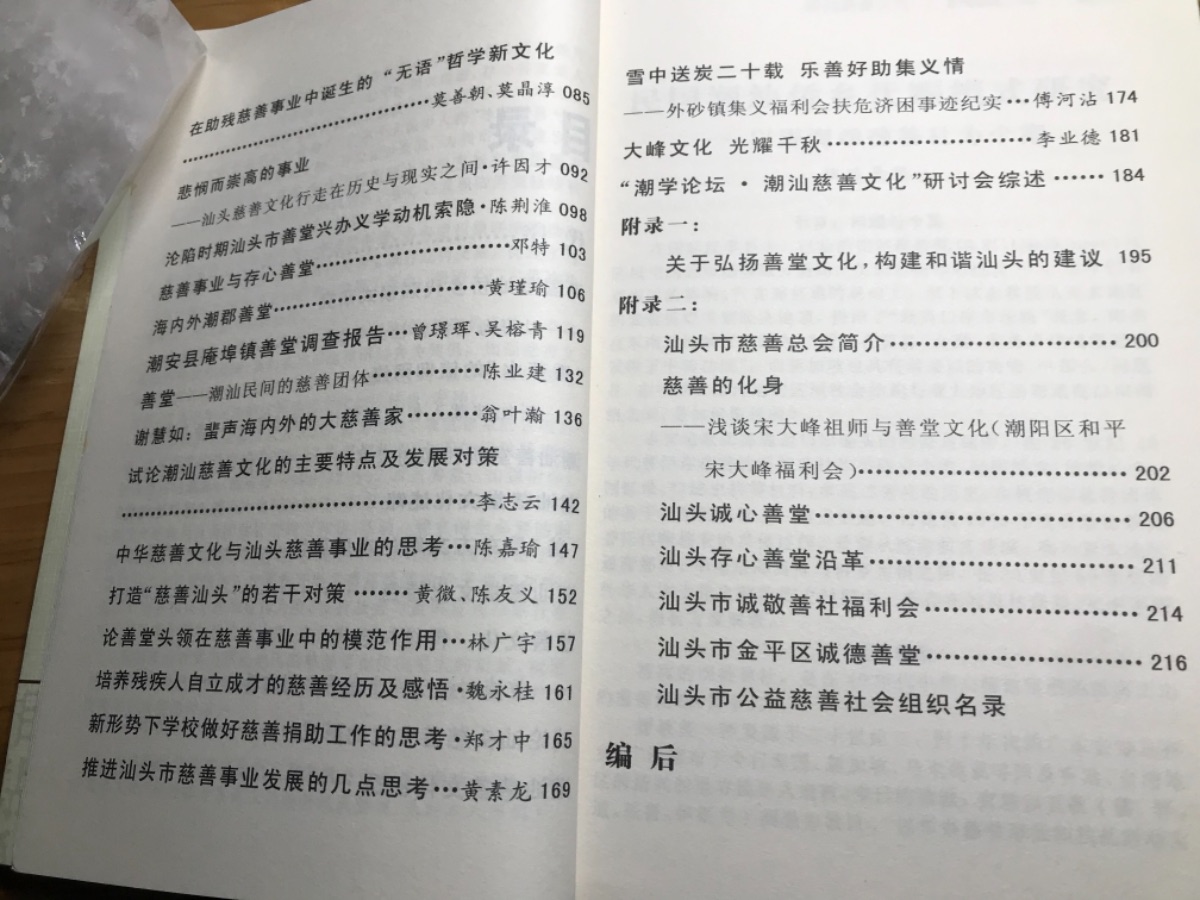 在助残慈善事业中诞生的“无语”哲学新文化
……………………………莫善朝、莫晶淳 085
悲悯而崇高的事业
——汕头慈善文化行走在历史与现实之间·许因才 092
沦陷时期汕头市善堂兴办义学动机索隐·陈荆淮 098
慈善事业与存心善堂……………………邓特 103
海内外潮郡善堂……………………黄瑾瑜 106
潮安县庵埠镇善堂调查报告…曾璟珲、吴榕青 119
善堂——潮汕民间的慈善团体…………陈业建 132
谢慧如：蜚声海内外的大慈善家………翁叶瀚 136
试论潮汕慈善文化的主要特点及发展对策
………………………………………李志云 142
中华慈善文化与汕头慈善事业的思考…陈嘉瑜 147
打造“慈善汕头”的若干对策……黄微、陈友义 152
论善堂头领在慈善事业中的模范作用…林广宇 157
培养残疾人自立成才的慈善经历及感悟·魏永桂 161
新形势下学校做好慈善捐助工作的思考·郑才中 165
推进汕头市慈善事业发展的几点思考…黄素龙 169
雪中送炭二十载 乐善好助集义情
——外砂镇集义福利会扶危济困事迹纪实…傅河沾 174
大峰文化 光耀千秋…………………李业德 181
“潮学论坛·潮汕慈善文化”研讨会综述…… 184
附录一：
关于弘扬善堂文化，构建和谐汕头的建议 195
附录二：
汕头市慈善总会简介……………………… 200
慈善的化身
——浅谈宋大峰祖师与善堂文化（潮阳区和平
宋大峰福利会）………………………… 202
汕头诚心善堂……………………………… 206
汕头存心善堂沿革………………………… 211
汕头市诚敬善社福利会…………………… 214
汕头市金平区诚德善堂…………………… 216
汕头市公益慈善社会组织名录
编后